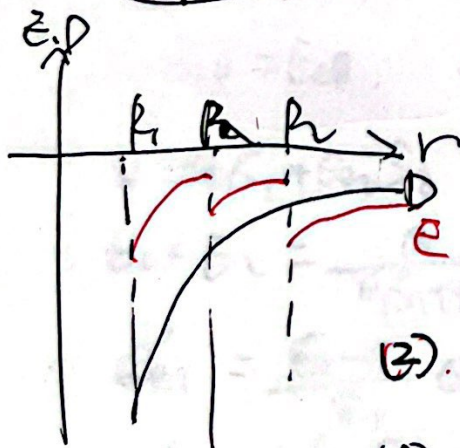 E.D
R₁
R₂
r
D
E
(2).